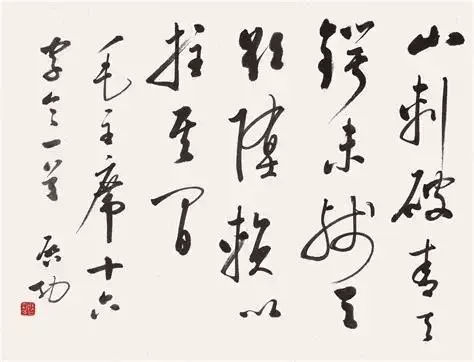 山刺破青天
鍔未殘天
欲墮賴以
拄其間
毛主席十六
字令一首 启功